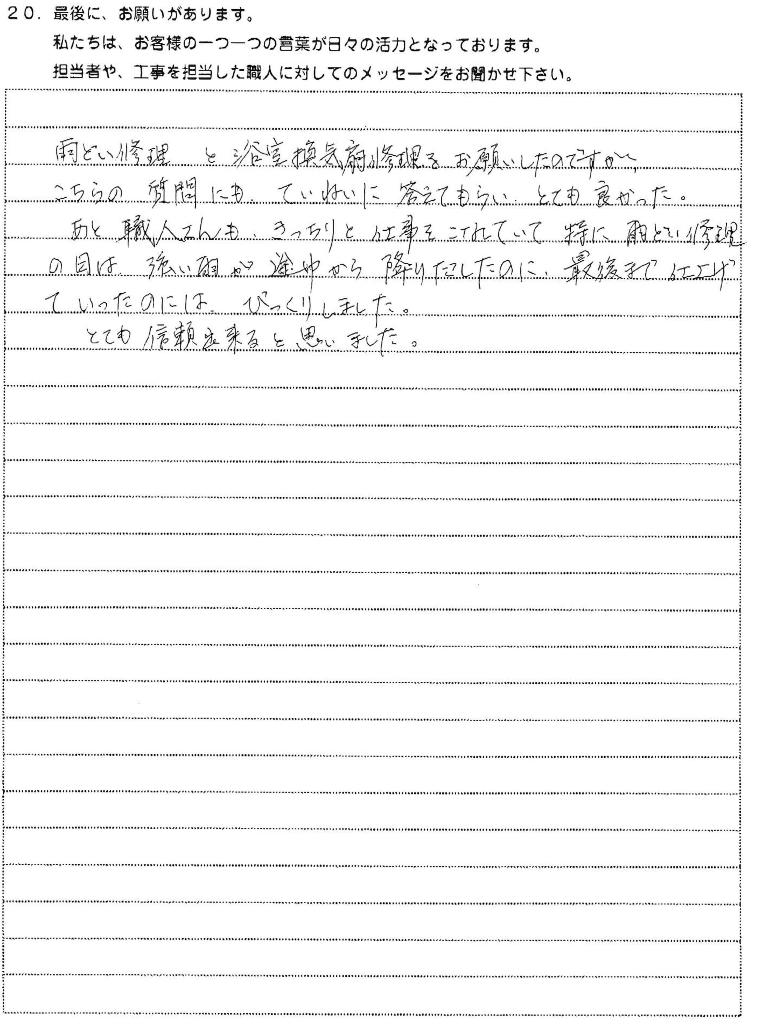 20. 最後に、お願いがあります。
私たちは、お客様の一つ一つの言葉が日々の活力となっております。
担当者や、工事を担当した職人に対してのメッセージをお聞かせ下さい。
雨どい修理 と 浴室換気扇修理を お願いしたのですが、
こちらの 質問にも、ていねいに 答えてもらい、とても 良かった。
あと 職人さんも、きっちりと 仕事を これていて 特に 雨どい修理
の日は、強い雨が 途中から 降りだしたのに、最後まで 仕上げ
ていったのには、びっくりしました。
とても 信頼出来ると 思いました。